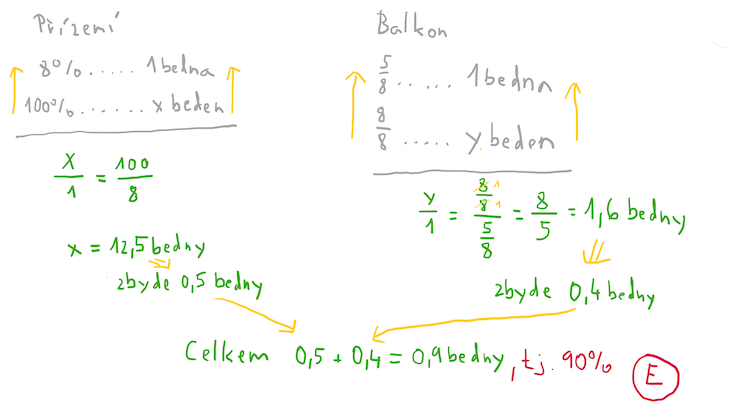 Přízemí
8% ..... 1 bedna
100% ....... x beden
x/1 = 100/8
x = 12,5 bedny
zbyde 0,5 bedny
Balkon
5/8 ..... 1 bedna
8/8 ..... y beden
y/1 = (8/8)/(5/8) = 8/5 = 1,6 bedny
1
1
zbyde 0,4 bedny
Celkem 0,5 + 0,4 = 0,9 bedny, tj. 90%
E